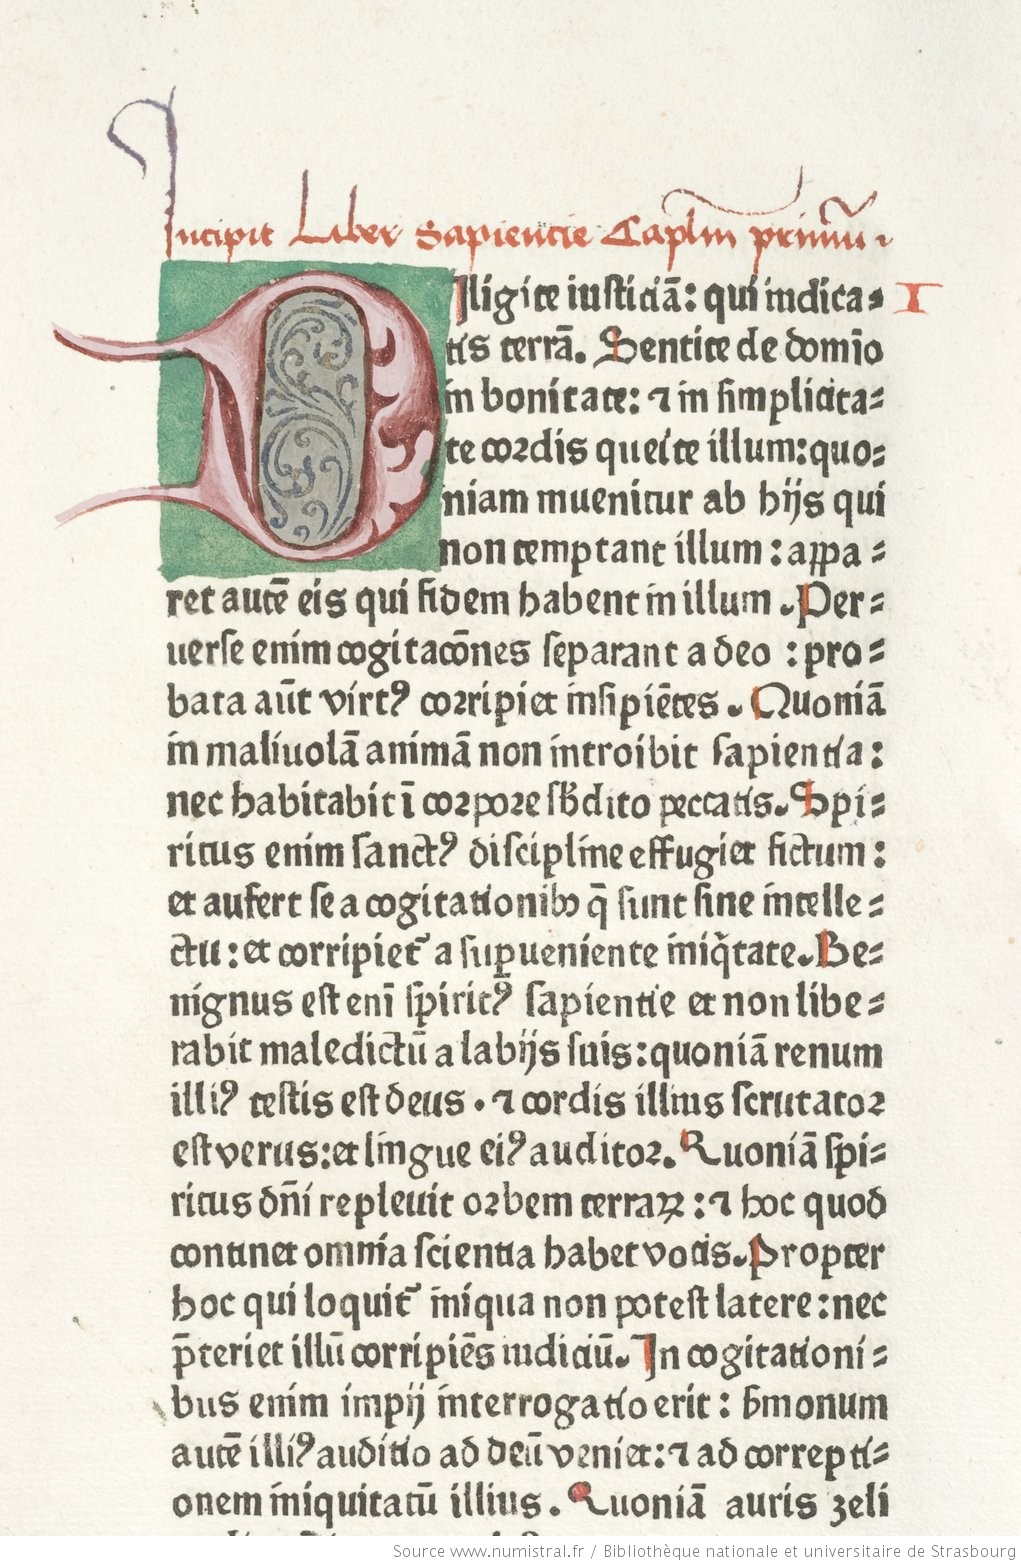 Incipit Liber Sapiencie Caplm primu
Diligite iusticiā: qui iudica⸗ I
tis terrā. Sentite de domīo
in bonitate: ⁊ in simplicita⸗
te cordis querite illum: quo⸗
niam inuenitur ab hijs qui
non temptant illum: appa⸗
ret autē eis qui fidem habent in illum. Per⸗
uerse enim cogitacōnes separant a deo: pro⸗
bata aūt virtꝰ corripiet insipiētes. Quoniā
in maliuolā animā non introibit sapientia:
nec habitabit ī corpore sb̄dito peccatis. Spi⸗
ritus enim sanctꝰ discipline effugiet fictum:
et aufert se a cogitationibꝫ q̄ sunt sine intelle⸗
ctu: et corripiet᷑ a suꝑueniente iniqͥtate. Be⸗
nignus est enī spiritꝰ sapientie et non libe⸗
rabit maledictū a labijs suis: quoniā renum
illiꝰ testis est deus. ⁊ cordis illius scrutator
est verus: et lingue eiꝰ auditor. Quoniā spi⸗
ritus dn̄i repleuit orbem terraꝝ: ⁊ hoc quod
continet omnia scientia habet vocis. Propter
hoc qui loquit᷑ iniqua non potest latere: nec
p̄teriet illū corripiēs iudiciū. In cogitationi⸗
bus enim impij interrogatio erit: s̄monum
autē illiꝰ auditio ad deū veniet: ⁊ ad correpti⸗
onem iniquitatū illius. Quoniā auris zeli
Source www.numistral.fr / Bibliothèque nationale et universitaire de Strasbourg